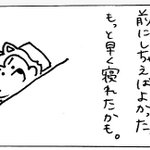 前にしちゃえばよかった
もっと早く寝れたかも。